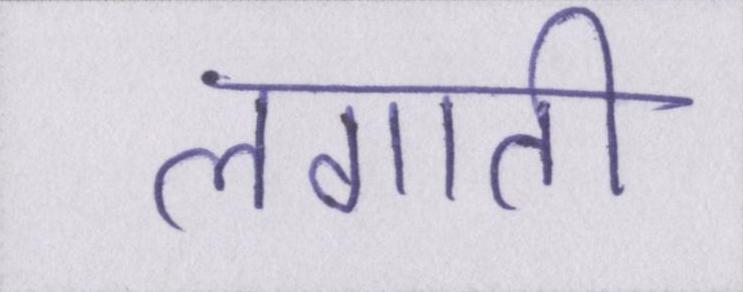 लगाती